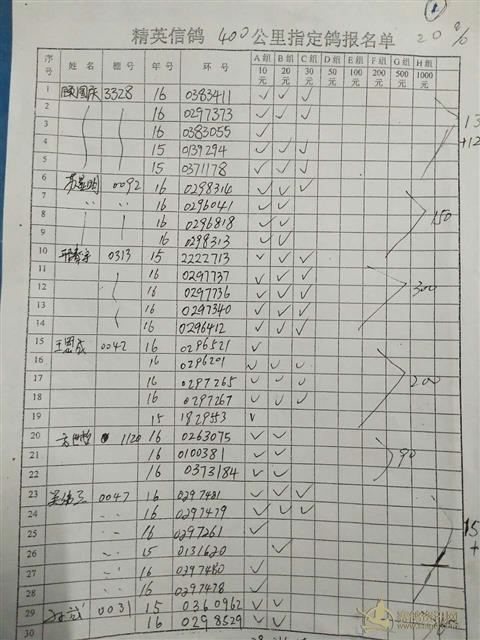 精英信鸽 400 公里指定鸽报名单 20%
序号 姓名 棚号 年号 环号 A组10元 B组20元 C组30元 D组50元 E组100元 F组200元 G组500元 H组1000元
1 3328 16 0383411 ✓ ✓ ✓
2 16 0297373 ✓ ✓ ✓
3 16 0383055 ✓
4 15 0139294 ✓ ✓ ✓
5 15 0371178 ✓ ✓ ✓
6 0092 16 0298314 ✓ ✓ ✓
7 16 0296041 ✓ ✓
8 16 0296818 ✓ ✓
9 16 0298313 ✓ ✓
150
10 0313 15 2222713 ✓ ✓ ✓
11 16 0297737 ✓ ✓ ✓
12 16 0297736 ✓ ✓ ✓
13 16 0297340 ✓ ✓ ✓
14 16 0296412 ✓ ✓ ✓
300
15 0042 16 0296521 ✓
16 16 0296201 ✓ ✓ ✓
17 16 0297265 ✓ ✓ ✓
18 16 0297267 ✓ ✓ ✓
19 15 1829553 ✓
200
20 1120 16 0263075 ✓ ✓
21 16 0100381 ✓ ✓
22 16 0373184 ✓ ✓
90
23 0047 16 0297481 ✓ ✓ ✓
24 16 0297479 ✓ ✓ ✓
25 16 0297261 ✓
26 15 0131620 ✓
27 16 0397480 ✓
28 16 0297478 ✓
29 0031 15 0360962 ✓ ✓
30 16 0298529 ✓ ✓